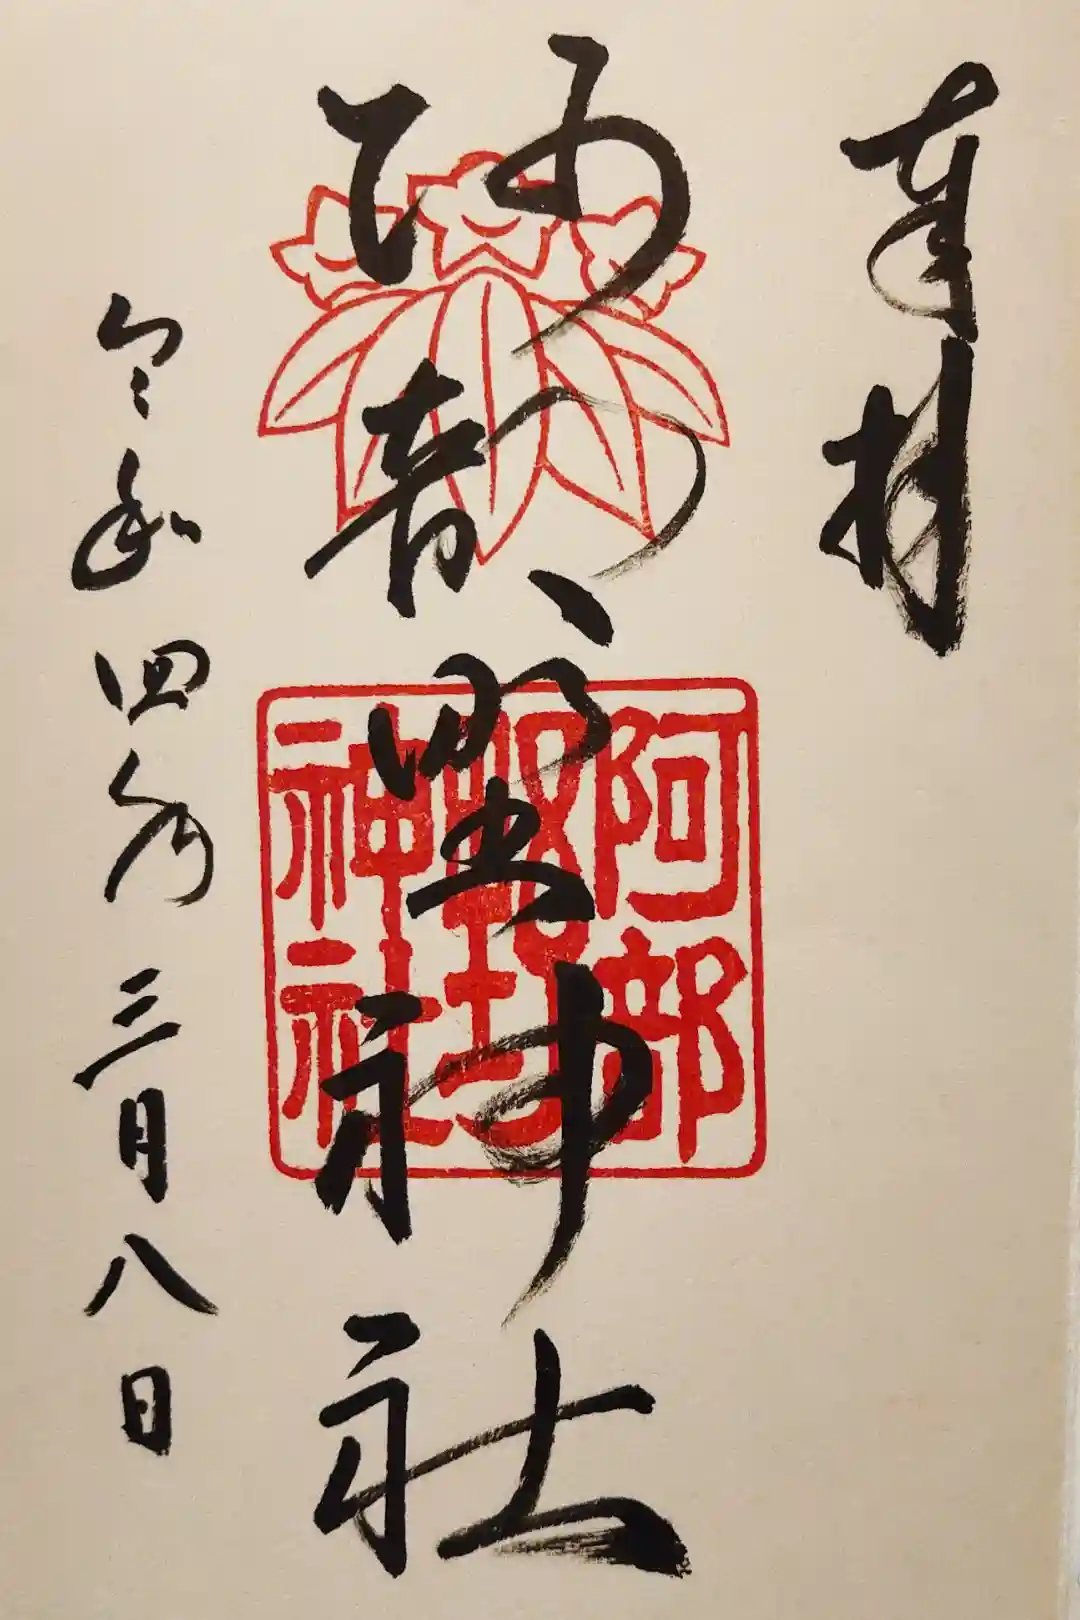 奉拝
阿部野神社
令和四年三月八日
阿部
野
神社